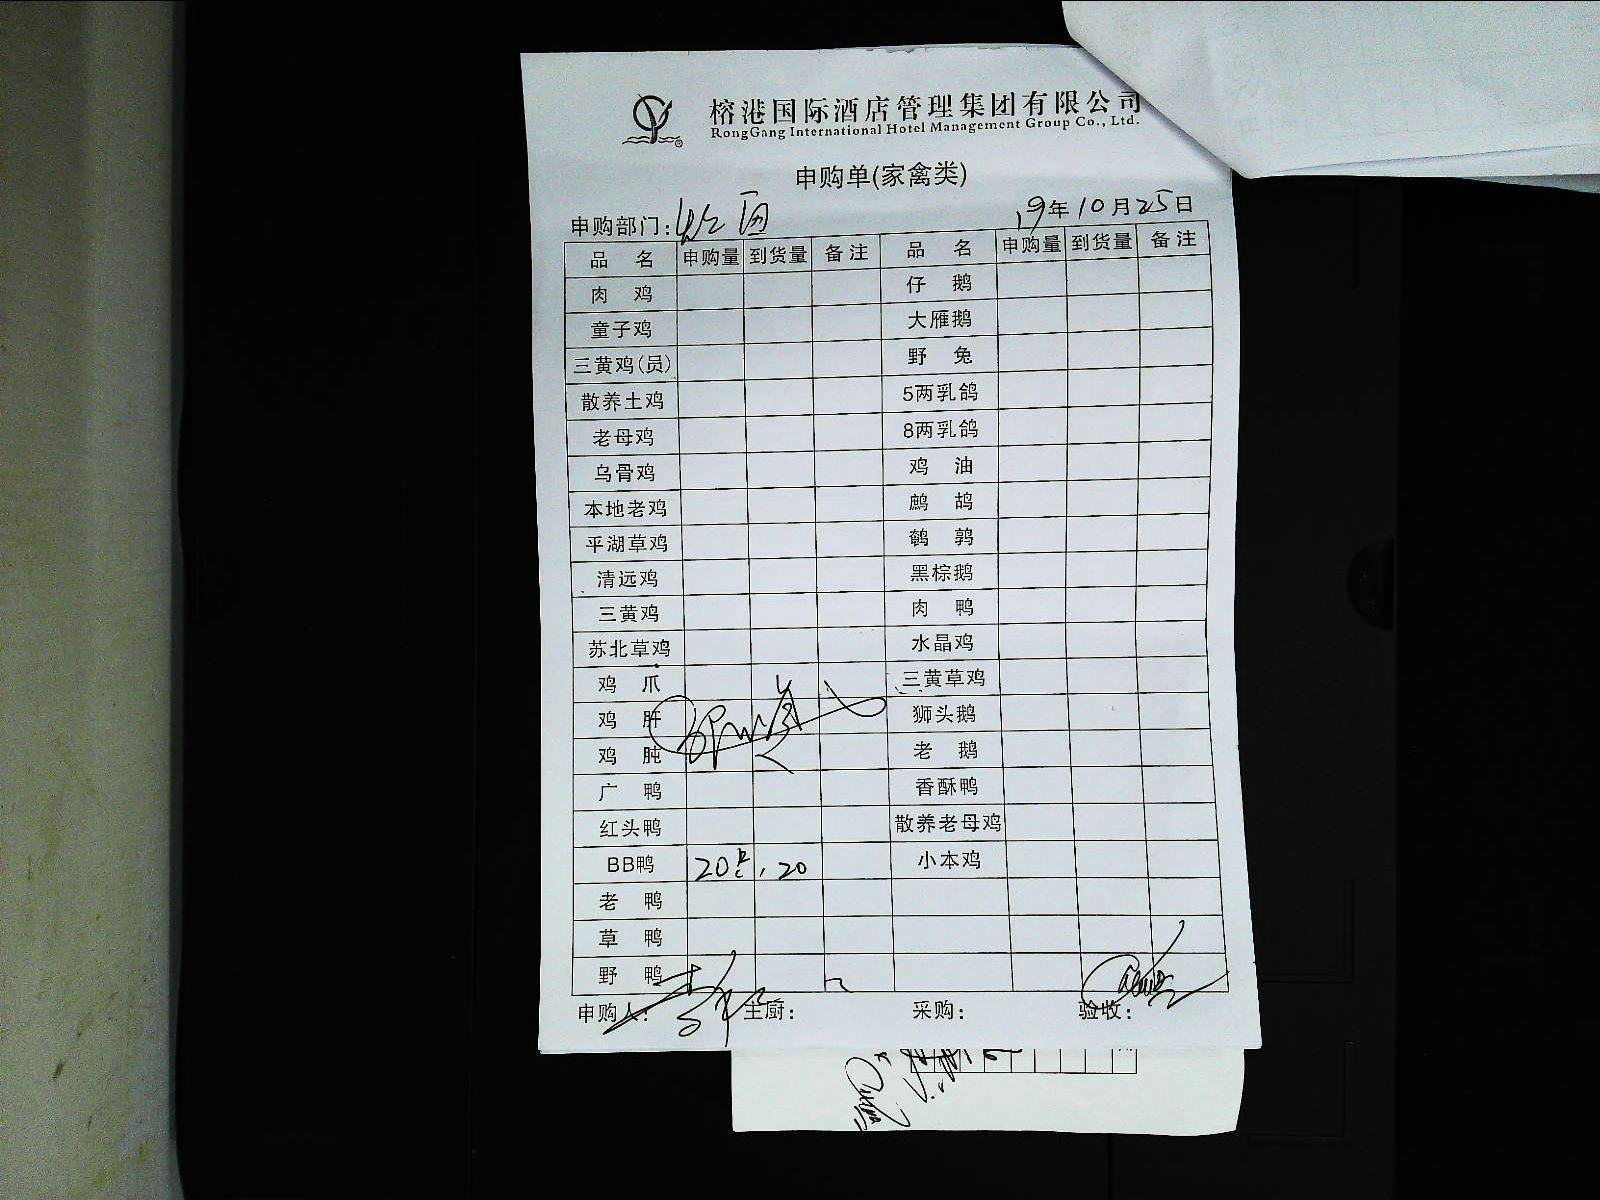 榕港国际酒店管理集团有限公司
RongGang International Hotel Management Group Co., Ltd.
申购单(家禽类)
申购部门: 19年10月25日
品 名 申购量 到货量 备注 品 名 申购量 到货量 备注
肉 鸡 仔 鹅
童子鸡 大雁鹅
三黄鸡(员) 野 兔
散养土鸡 5两乳鸽
老母鸡 8两乳鸽
乌骨鸡 鸡 油
本地老鸡 鹧 鸪
平湖草鸡 鹌 鹑
清远鸡 黑棕鹅
三黄鸡 肉 鸭
苏北草鸡 水晶鸡
鸡 爪 三黄草鸡
鸡 肝 狮头鹅
鸡 肫 老 鹅
广 鸭 香酥鸭
红头鸭 散养老母鸡
BB鸭 20只 20 小本鸡
老 鸭
草 鸭
野 鸭
申购人: 主厨: 采购: 验收: